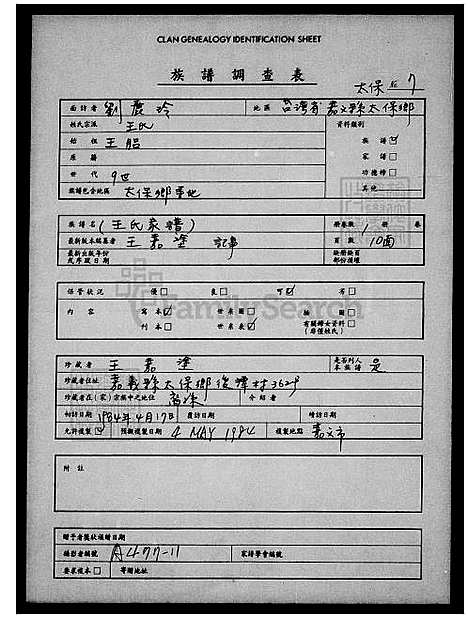 CLAN GENEALOGY IDENTIFICATION SHEET
族譜調查表
太保 7
面訪者 劉 玲 地區 台灣省嘉义縣太保鄉
姓氏宗派 王氏 資料類別
始祖 王 族譜☑
原籍 家譜□
世代 9世 功德榜□
族譜包含地區 太保鄉 其他
族譜名 (王氏家譜) 冊卷數 1 冊 卷
最新版本編纂者 王嘉塗 記事 頁數 10面
最新出版年份
或序跋日期
保管狀況 優□ 良□ 可☑ 劣□
內容 寫本☑ 世系圖□ 插圖□
刊本□ 世系表☑ 有關婦女資料□
珍藏者 王嘉塗 是否列入本族譜 是
珍藏者住址 嘉義縣太保鄉後 村362号
珍藏者在(家)宗族中之地位 介紹者
初訪日期 1984年4月17日 覆訪日期 續訪日期
允許複製☑ 預擬複製日期 4 MAY 1984 複製地點 嘉义市
附註
贈予者獎狀填贈日期
攝影者編號 477-11 家譜學會編號
要求複本□ 寄贈地址
FamilySearch